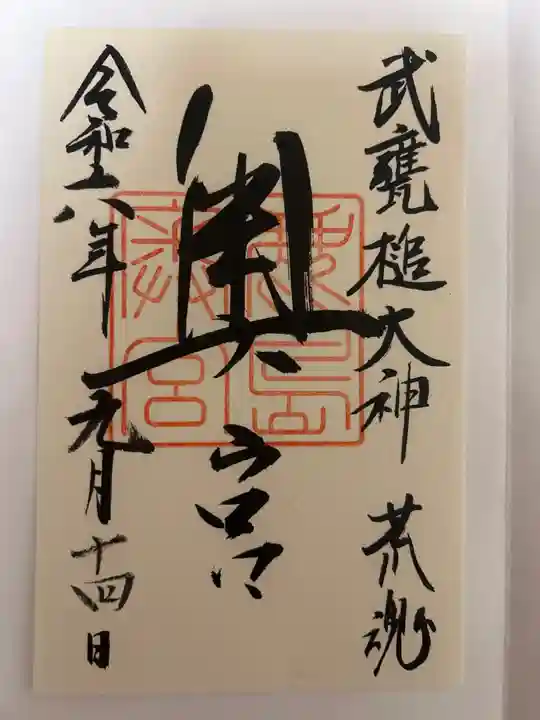 武甕槌大神 荒魂
奥宮
令和六年九月十四日